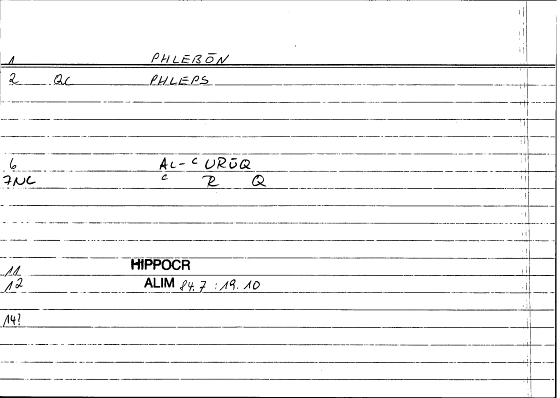 1 PHLEBŌN
2 QC PHLEPS
6 AL-ʿURŪQ
7NC ʿ R Q
11 HIPPOCR
12 ALIM 84.7 :19.10
14?